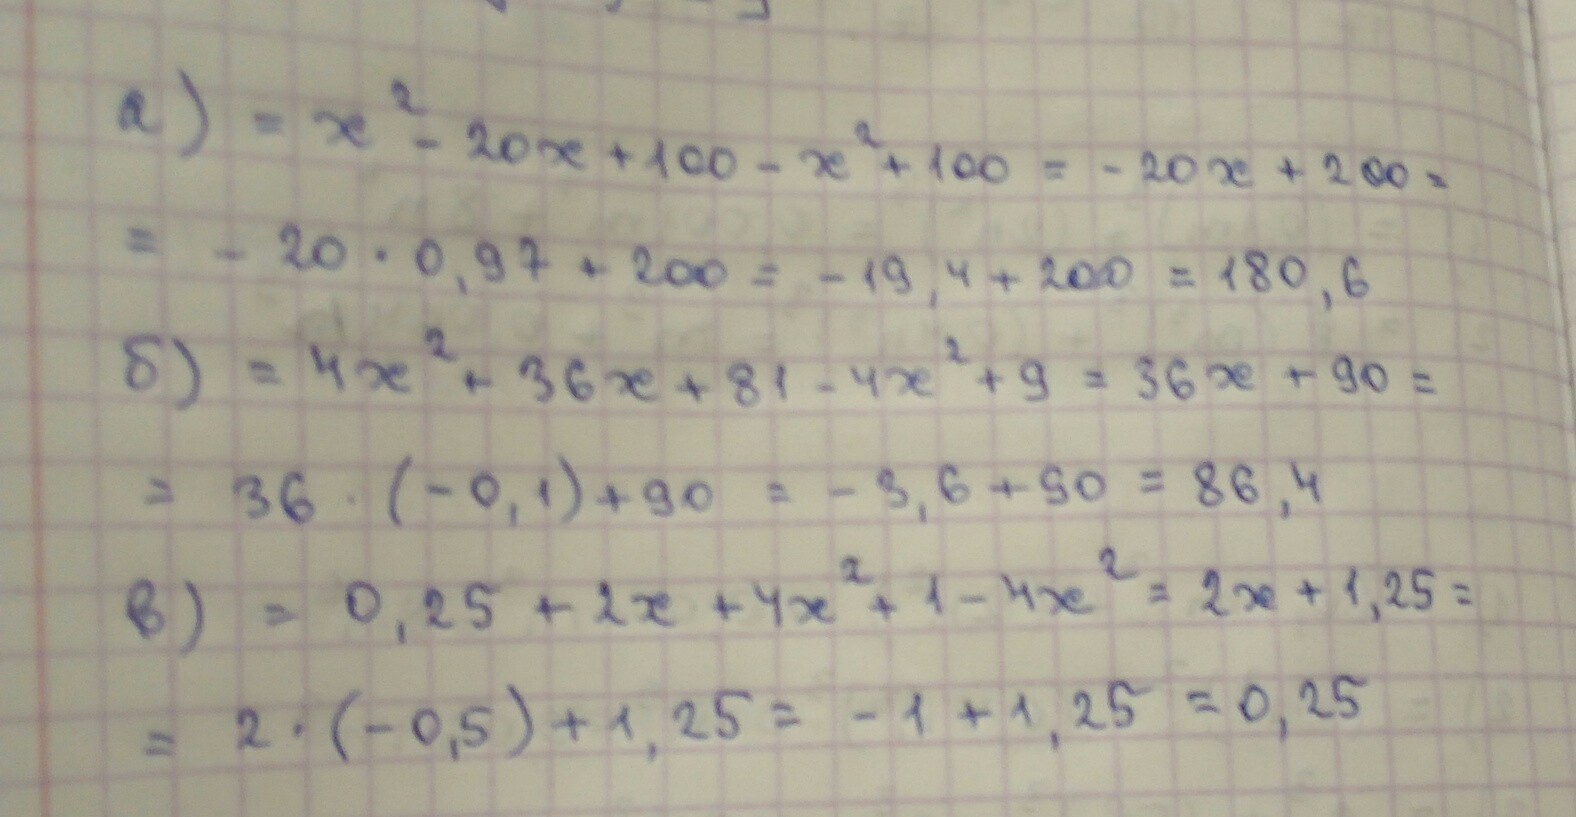 а) = x² - 20x + 100 - x² + 100 = - 20x + 200 =
= - 20 · 0,97 + 200 = - 19,4 + 200 = 180,6
б) = 4x² + 36x + 81 - 4x² + 9 = 36x + 90 =
= 36 · (-0,1) + 90 = - 3,6 + 90 = 86,4
в) = 0,25 + 2x + 4x² + 1 - 4x² = 2x + 1,25 =
= 2 · (-0,5) + 1,25 = - 1 + 1,25 = 0,25